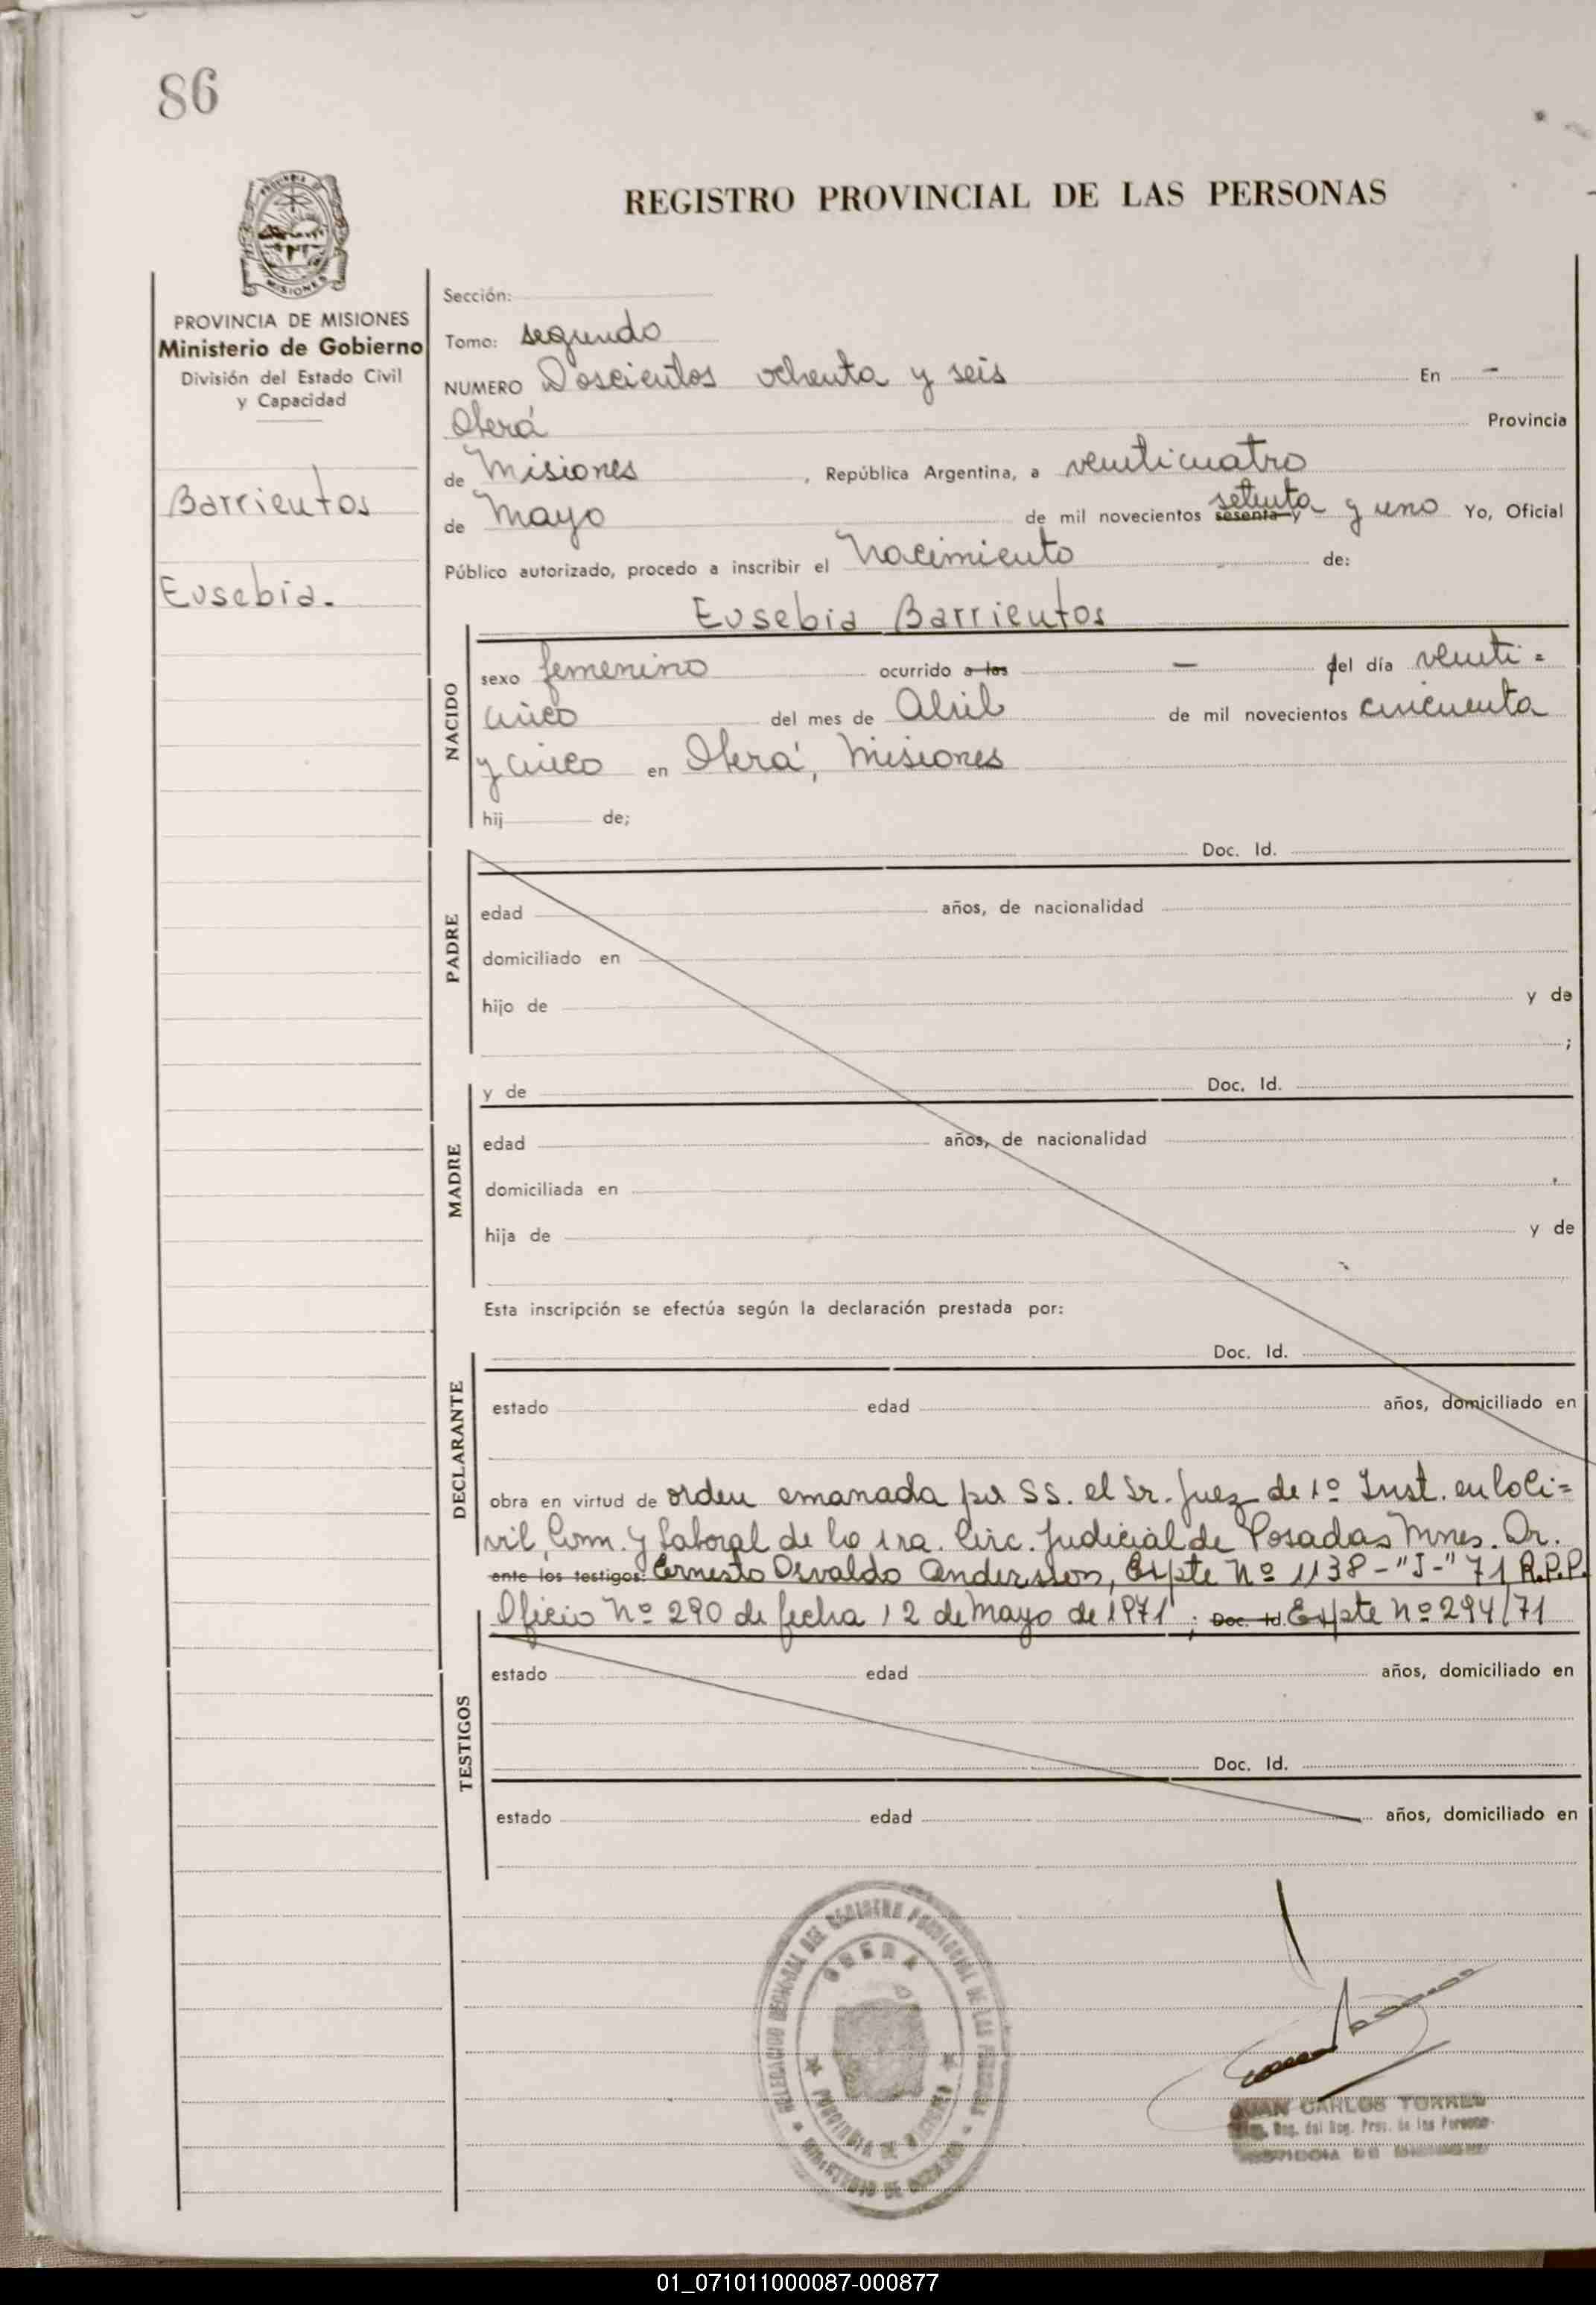 86
REGISTRO PROVINCIAL DE LAS PERSONAS
MISIONES
PROVINCIA DE MISIONES
Ministerio de Gobierno
División del Estado Civil
y Capacidad
Barrientos
Eusebia.
Sección:
Tomo: segundo
NUMERO Doscientos ochenta y seis En -
Oberá Provincia
de Misiones, República Argentina, a veinticuatro
de Mayo de mil novecientos sesenta y setenta y uno Yo, Oficial
Público autorizado, procedo a inscribir el Nacimiento de:
Eusebia Barrientos
NACIDO
sexo femenino ocurrido a las - del día veinti=
cinco del mes de Abril de mil novecientos cincuenta
y cinco en Oberá, Misiones
hij de;
PADRE
Doc. Id.
edad años, de nacionalidad
domiciliado en
hijo de y de
;
MADRE
y de Doc. Id.
edad años, de nacionalidad
domiciliada en
hija de y de
Esta inscripción se efectúa según la declaración prestada por:
DECLARANTE
Doc. Id.
estado edad años, domiciliado en
obra en virtud de orden emanada por SS. el Sr. Juez de 1º Inst. en lo Ci=
vil, Com. y Laboral de la 1ra. Circ. Judicial de Posadas Mnes. Dr.
ante los testigos: Ernesto Osvaldo Andersson, Expte Nº 1138-"J-"71 R.P.P.
Oficio Nº 290 de fecha 12 de Mayo de 1971; Doc. Id. Expte nº 294/71
TESTIGOS
estado edad años, domiciliado en
Doc. Id.
estado edad años, domiciliado en
DELEGACION REGIONAL DEL REGISTRO PROVINCIAL DE LAS PERSONAS
OBERA
PROVINCIA DE MISIONES
MINISTERIO DE GOBIERNO
JUAN CARLOS TORRES
Reg. del Reg. Prov. de las Personas
PROVINCIA DE MISIONES
01_071011000087-000877